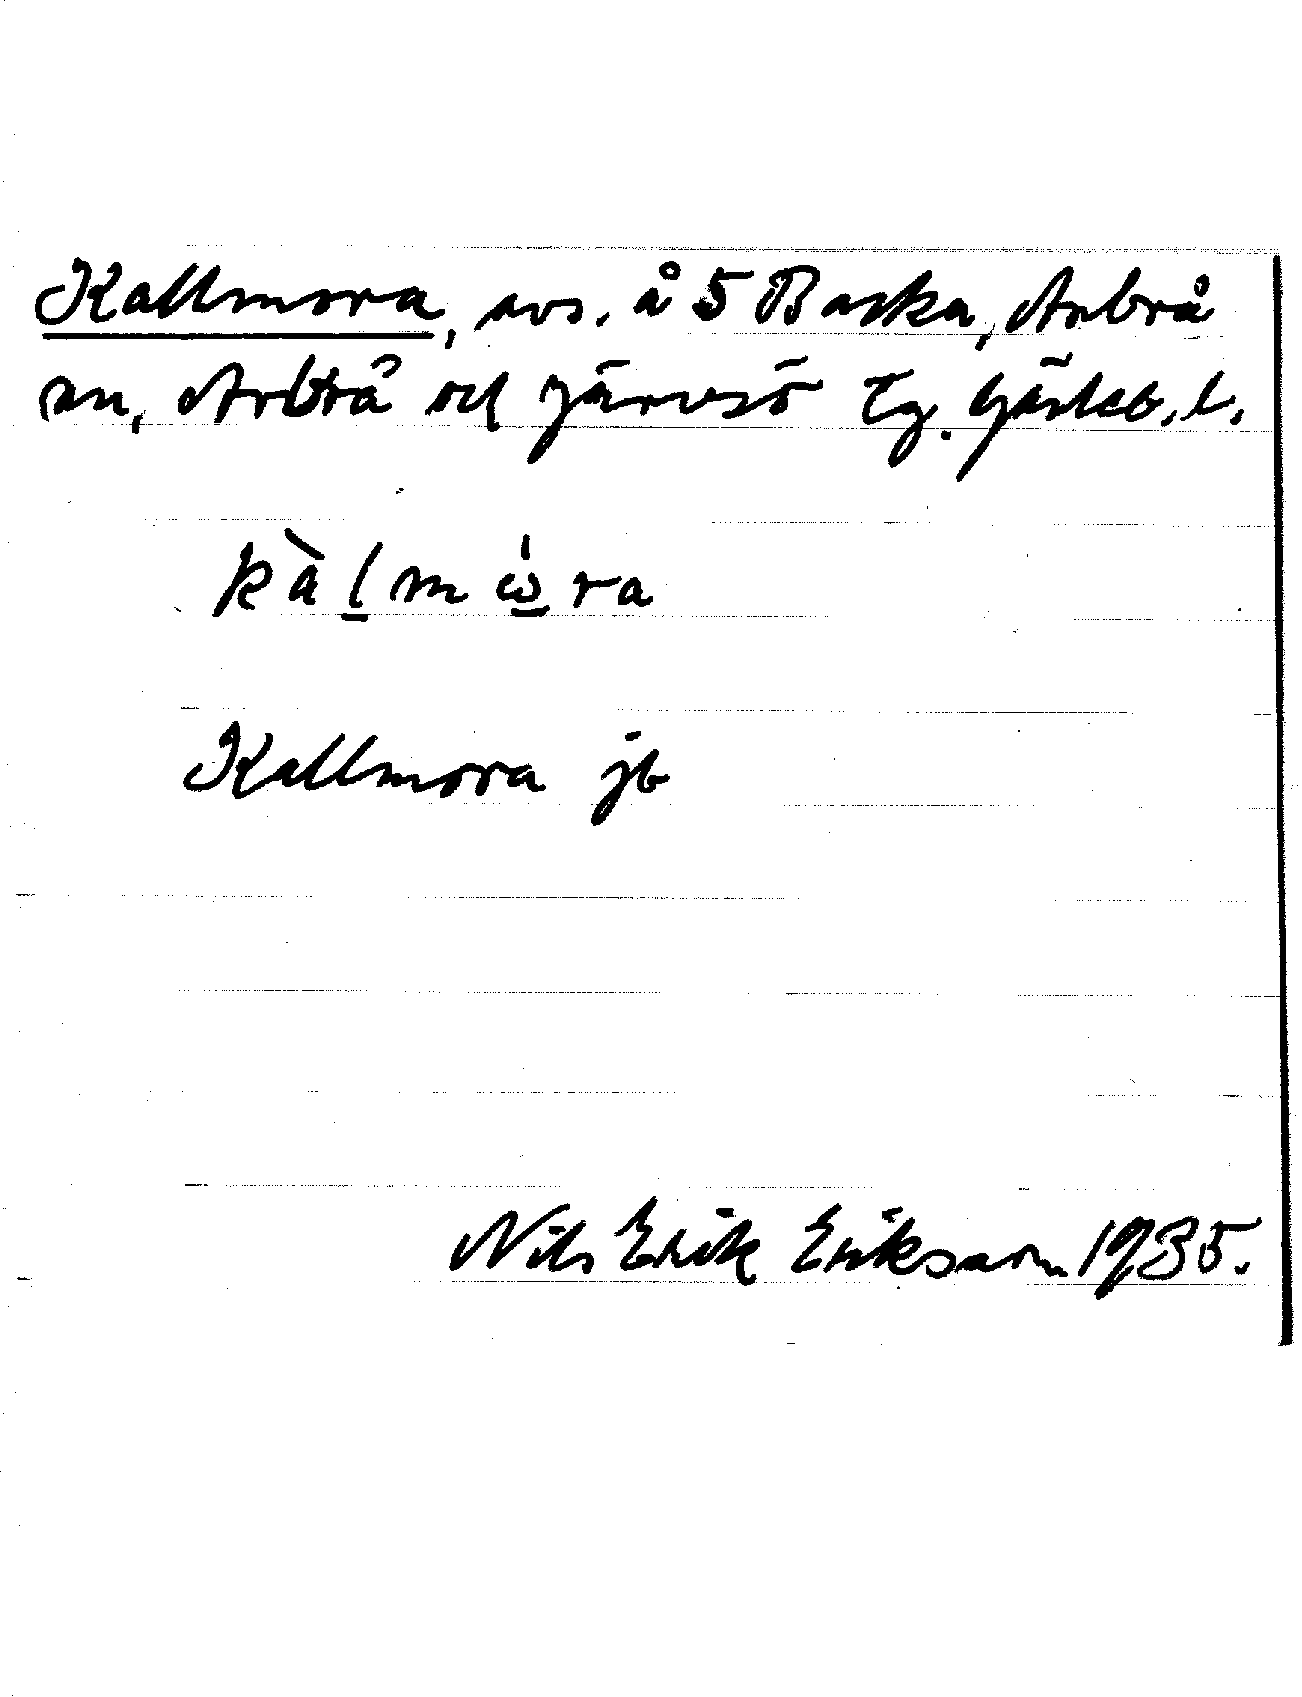 Kallmora, avs. å 5 Backa, Arbrå
sn, Arbrå och Järvsö tg. Gävleb. l.
kàl̲mω̲̍ra
Kallmora jb
Nils Erik Eriksson 1935.